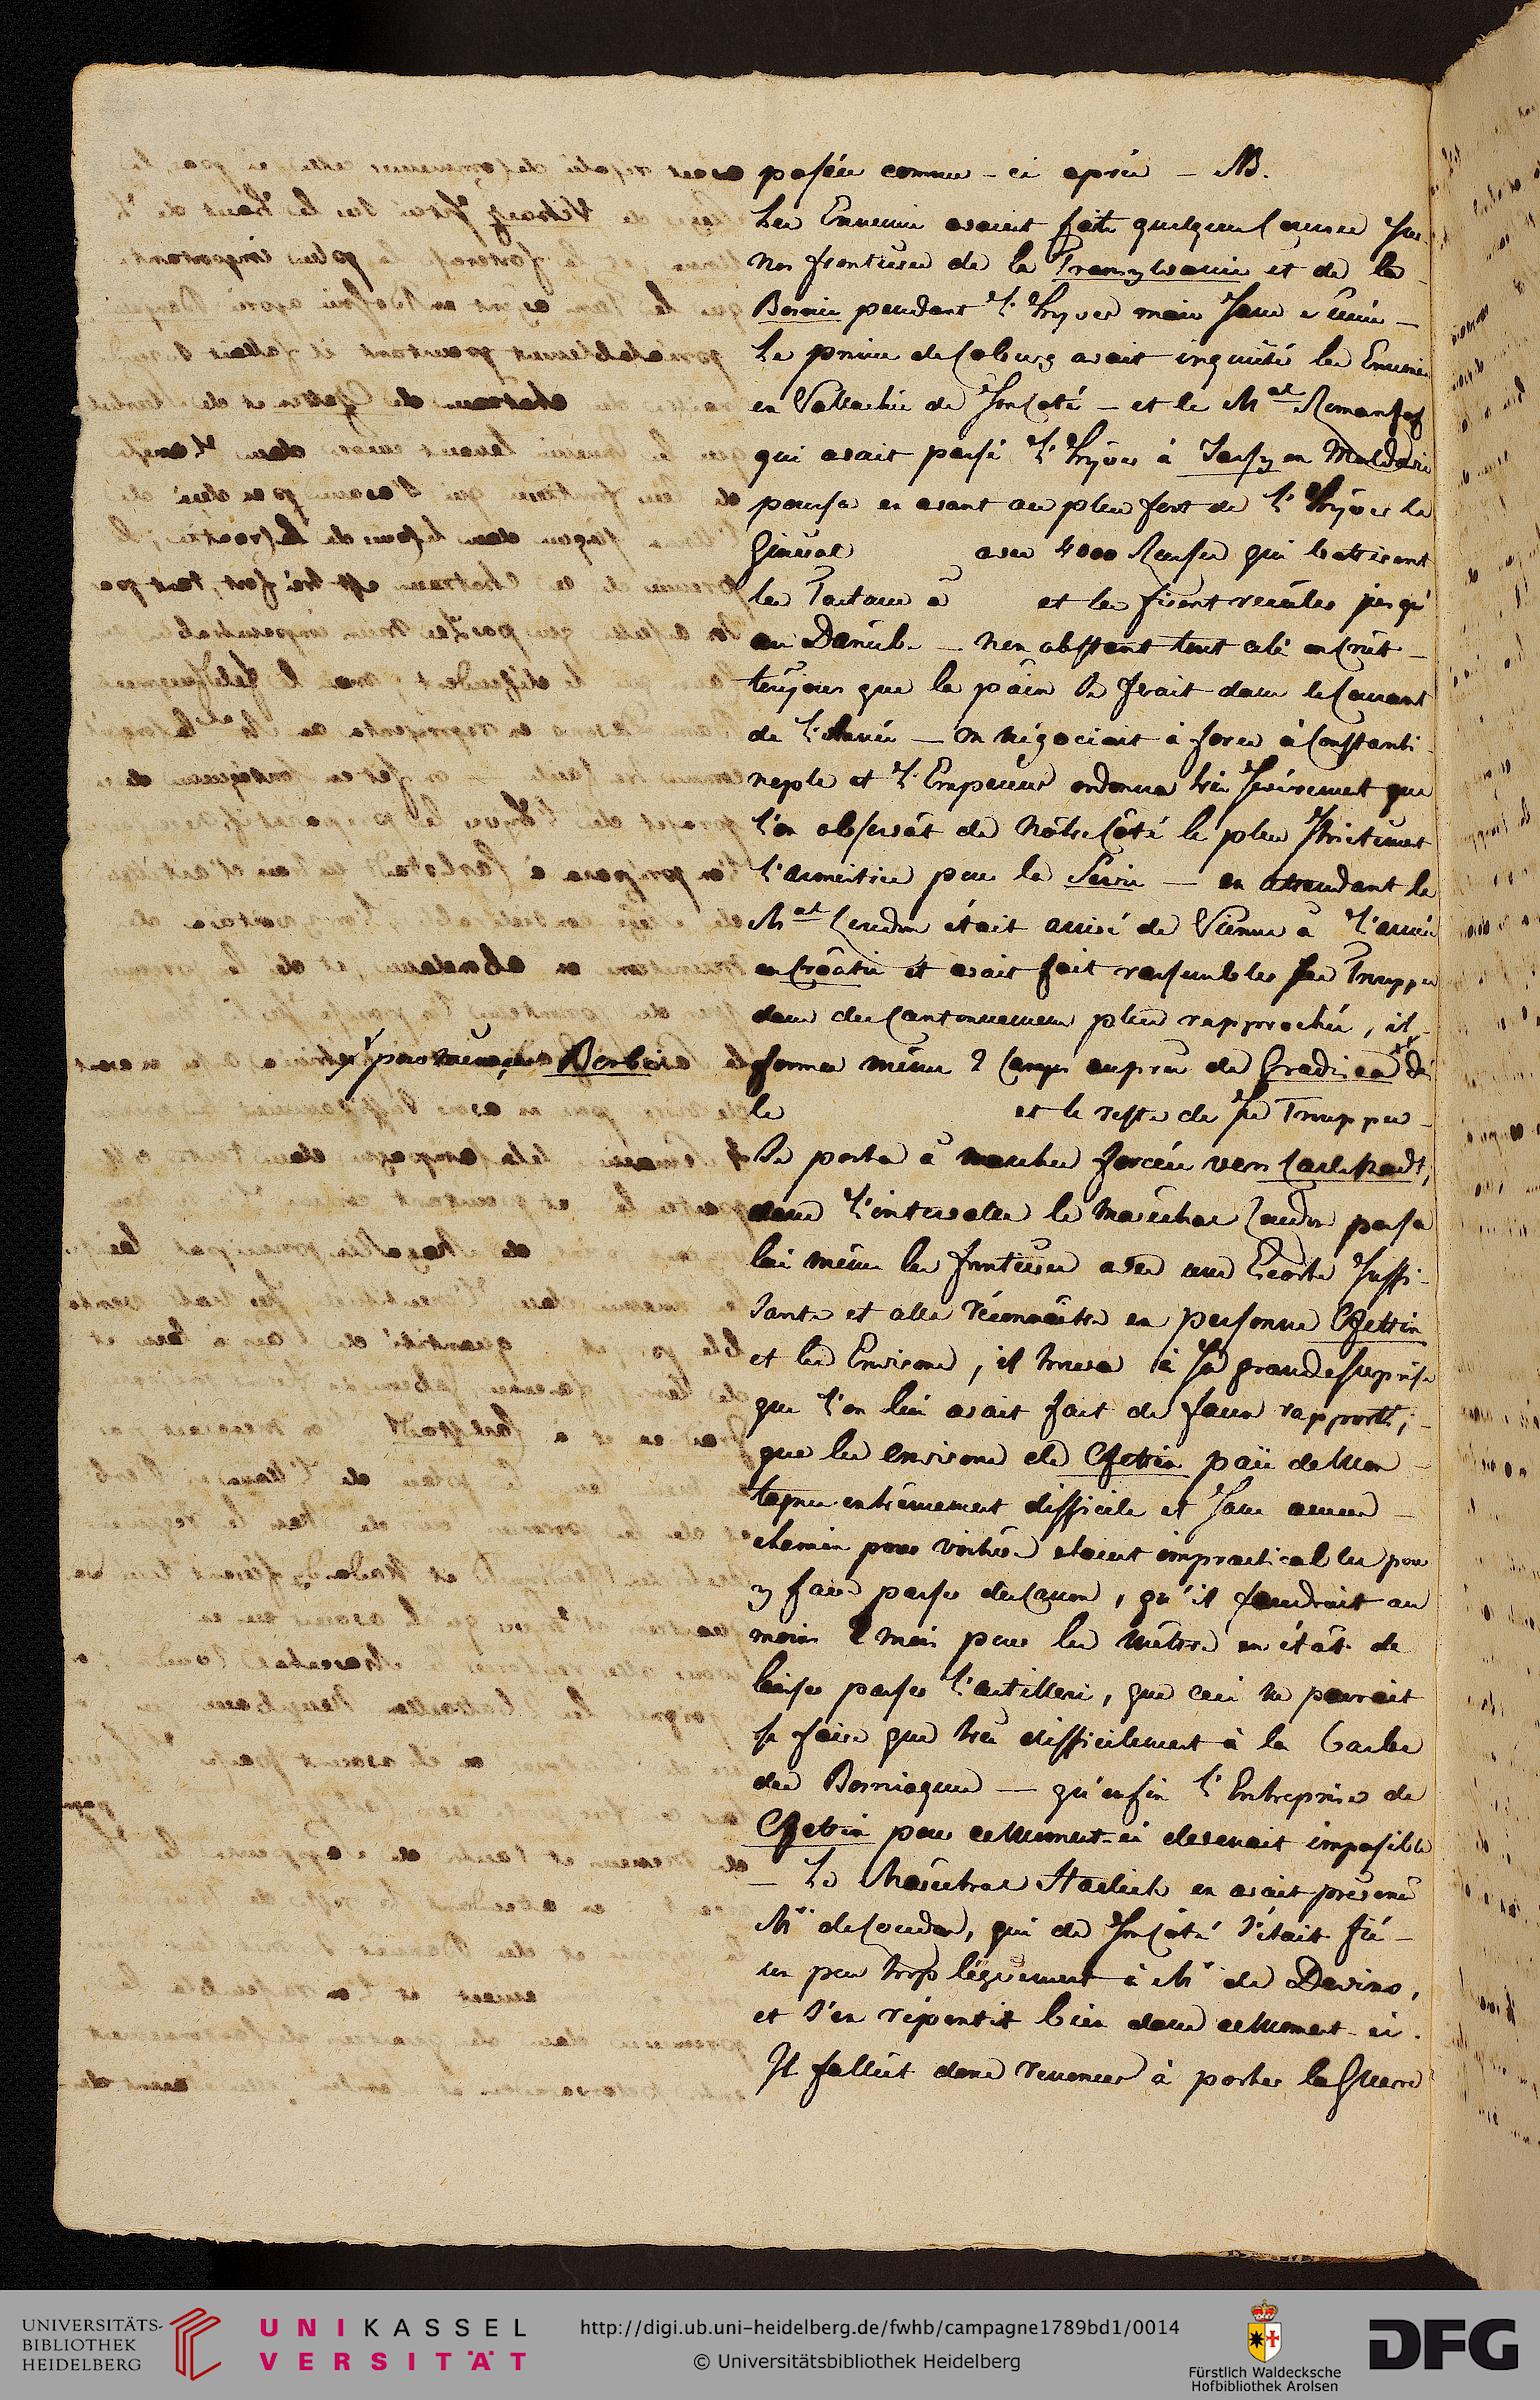 posée comme - ci après - NB.
Les Ennemis avaient fait quelques Courses sur
nos frontieres de la Transylvanie et de la
Bosnie pendant l'hyver mais sans suite -
Le prince de Cobourg avait inquiété les Ennemis
en Vallachie de son Coté - et le Mal Romanzof
qui avait passé l'hyver à Jassy en Moldavie
poussa en avant au plus fort de l'hyver le
General avec 4000 Russes qui battirent
les Tartares à et les firent reculer jusqu'
au Danube - non obstant tout cela on Crut -
toujours que la paix se ferait dans le Courant
de l'Année - on négociait à force à Constanti-
nople et l'Empereur ordonna très sévèrement que
l'on observât de nôtre Côté le plus strictement
l'armistice pour la Servie - en attendant le
Mal Loudon était arrivé de Vienne à l'armée
en Croatie et avait fait rassembler ses Trouppes
dans des Cantonnements plus rapprochés, il
forma même 2 Camps auprès de Gradisca de
pour menaçer Berbir
le et le reste de ses Trouppes -
se porta à marches forcées vers Carlstadt,
dans l'intervalle le Maréchal Loudon passa
lui même les frontieres avec une Escorte suffi-
sante et alla réconnaître en personne Czettin
et les Environs, il trouva à sa grande surprise
que l'on lui avait fait de faux rapports,
que les environs de Czettin païs de Mon-
tagnes extrémement difficile et sans aucun -
chemin pour voitures etaient impracticables pour
y faire passer des Canons, qu'il faudrait au
moins 2 mois pour les mettre en état de
laisser passer l'artillerie, que ceci ne pouvait
se faire que très difficilement à la barbe
des Bosniaques - qu'enfin l'Entreprise de
Czettin pour ce Moment-ci devenait impossible
- Le Maréchal Haddick en avait prévenu
Mr de Loudon, qui de son Côté s'était fié -
un peu trop légérement à Mr de Devins,
et s'en répentit bien dans ce Moment-ci.
Il fallût donc renoncer à porter la Guerre
UNIVERSITÄTS-
BIBLIOTHEK
HEIDELBERG
UNIKASSEL
VERSITÄT
http://digi.ub.uni-heidelberg.de/fwhb/campagne1789bd1/0014
© Universitätsbibliothek Heidelberg
Fürstlich Waldecksche
Hofbibliothek Arolsen
DFG